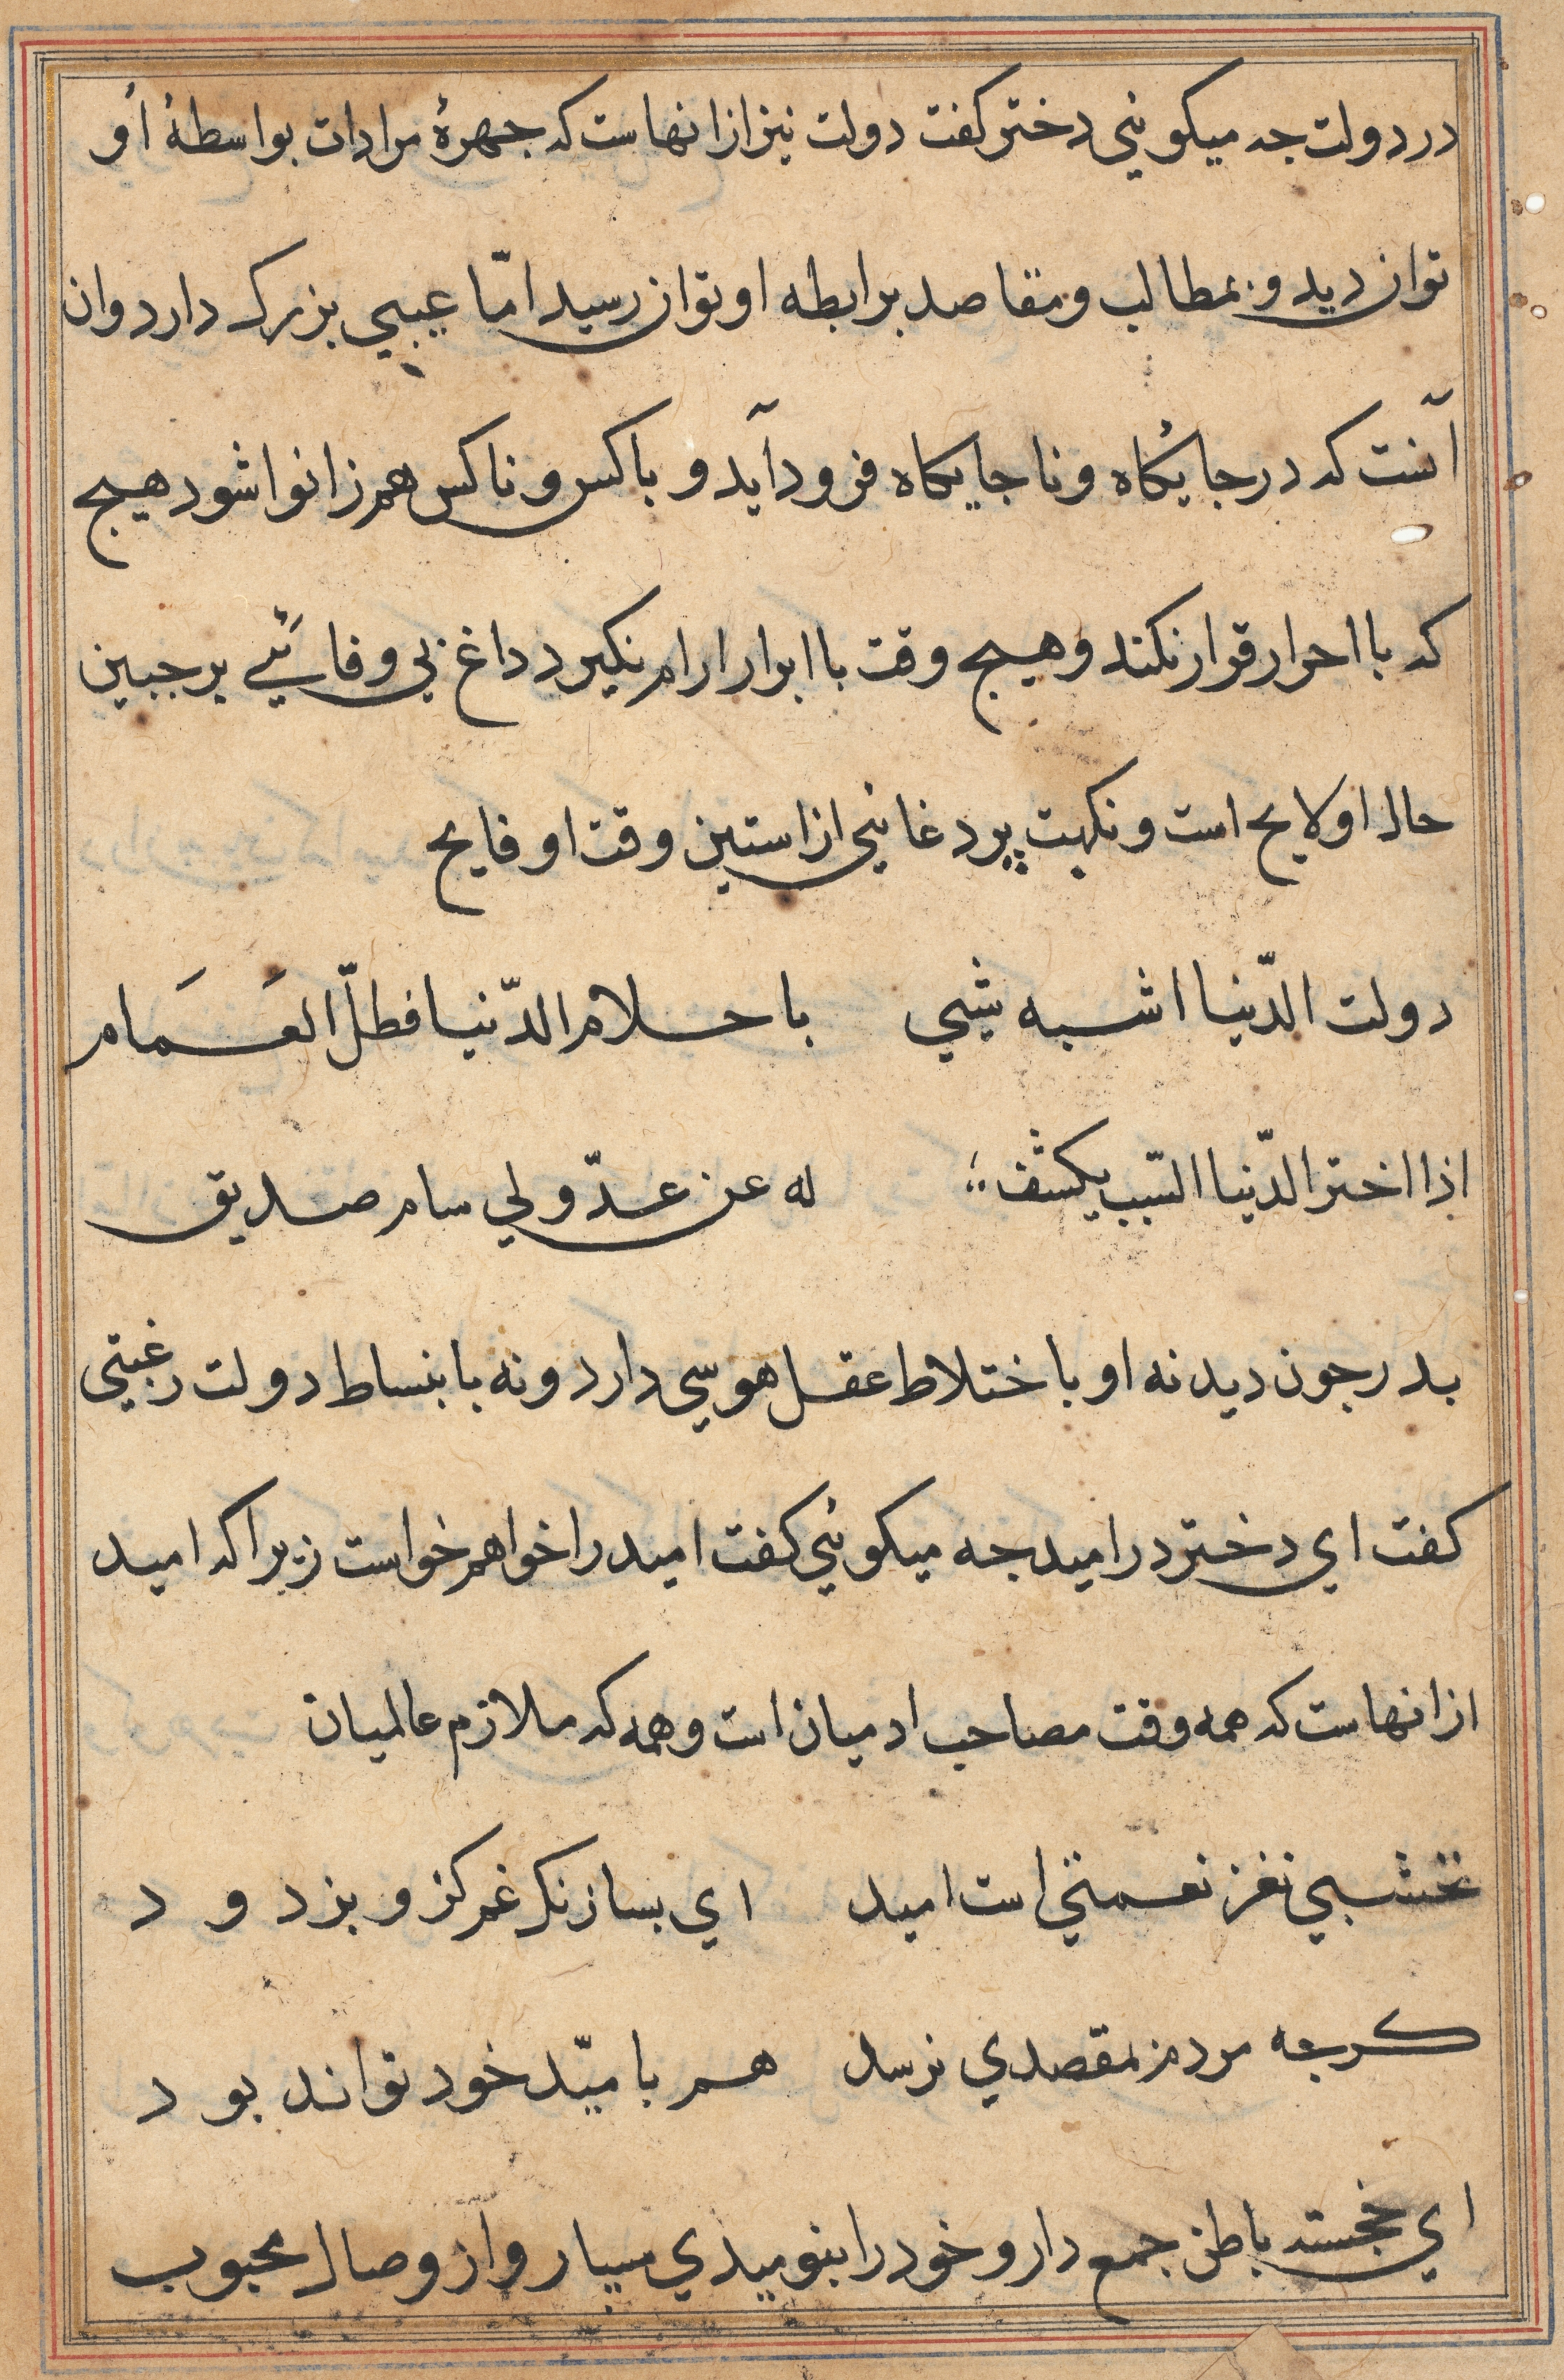 در دولت جه میکوئی دختر کفت دولت نیز ازانهاست که جهرهٔ مرادات بواسطهٔ او
توان دید و بمطالب و مقاصد برابطه او توان رسید امّا عیبی بزرک دارد وان
آنست که در جایکاه و ناجایکاه فرود آید و با کس و ناکس هم زانوا شود هیج
که با احرار قرار نکند و هیج وقت با ابرار ارام نکیرد داغ بی وفائی بر جبین
حال او لایح است و نکهت پردغائی از استین وقت او فایح
دولت الدّنیا اشبه شیی باحلام الدّنیا فطلّ الغَمَام
اذا اختر الدّنیا السّبب یکشف له عن عدّو لی سام صدیق
بدر جون دید نه او باختلاط عقل هوسی دارد و نه بابنساط دولت رغبتی
کفت ای دختر در امید جه میکوئی کفت امید را خواهم خواست زیرا که امید
ازانهاست که همه وقت مصاحب ادمیان است و همه که ملازم عالمیان
نخشبی نغز نعمتی است امید ای بسا زنک غم کز و بزدود
کرجه مردم بمقصدی نرسد هم بامیّد خود تواند بود
ای خجسته باطن جمع دار و خود را بنومیدی مسپار و از وصال محبوب